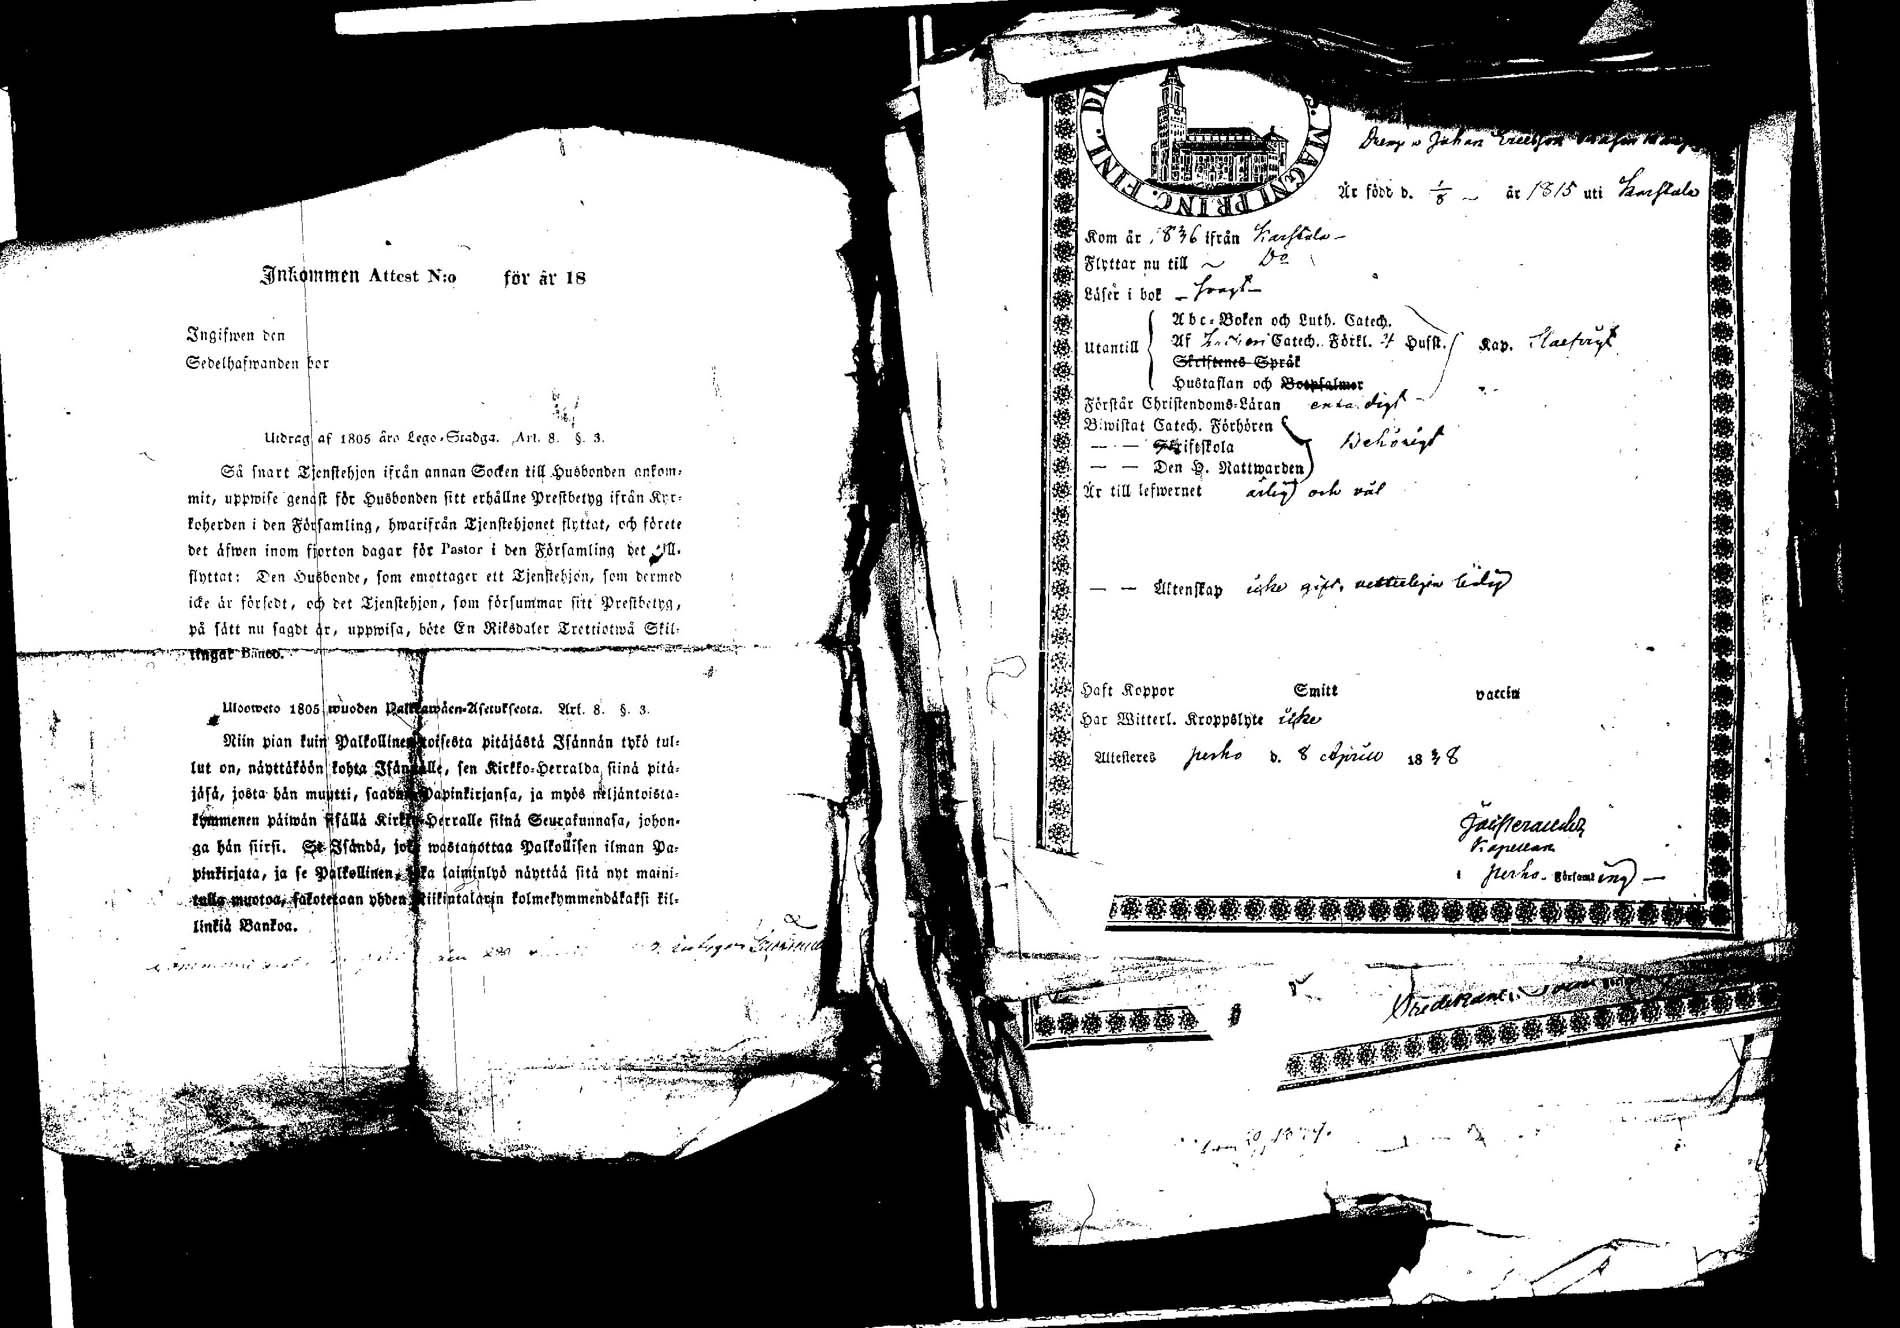 Inkommen Attest N:o för år 18
Ingifwen den
Sedelhafwanden bor
Utdrag af 1805 års Lego-Stadga. Art. 8. §. 3.
Så snart Tjenstehjon ifrån annan Socken till Husbonden ankom-
mit, uppwise genast för Husbonden sitt erhållne Prestbetyg ifrån Kyr-
koherden i den Församling, hwarifrån Tjenstehjonet flyttat, och förete
det äfwen inom fjorton dagar för Pastor i den Församling det
flyttat: Den Husbonde, som emottager ett Tjenstehjon, som dermed
icke är försedt, och det Tjenstehjon, som försummar sitt Prestbetyg,
på sätt nu sagdt är, uppwisa, böte En Riksdaler Trettiotwå Skil-
lingar Banco.
Ulosweto 1805 wuoden Palkawäen-Asetuksesta. Art. 8. §. 3.
Niin pian kuin Palkollinen toisesta pitäjästä Isännän tykö tul-
lut on, näyttäköön kohta Isännälle, sen Kirkko-Herralda siinä pitä-
jäsä, josta hän muutti, saadun Papinkirjansa, ja myös neljäntoista-
kymmenen päiwän sisällä Kirkko-Herralle siinä Seurakunnasa, johon-
ga hän siirsi. Se Isändä, joka wastanottaa Palkollisen ilman Pa-
pinkirjata, ja se Palkollinen, joka laiminlyö näyttää sitä nyt maini-
tulla muotoa, sakotetaan yhden Riikintalarin kolmekymmendäkaksi kil-
linkiä Bankoa.
FINL. MAGNI PRINC.
Drengen Johan Ericsson
Är född d. 1/8 år 1815 uti Karstula
Kom år 1836 ifrån Karstula
Flyttar nu till Do
Läser i bok svagt
Utantill
Abc-Boken och Luth. Catech.
Af Catech. Förkl. Hufst. Kap.
Skriftenes Språk
Hustaflan och Botpsalmer
Förstår Christendoms-Läran
Biwistat Catech. Förhören
— — Skriftskola Behörigt
— — Den H. Nattwarden
Är till lefwernet ärlig och väl
— — Äktenskap icke gift, vetterligen ledig
Haft Koppor Smitt vaccin
Har Witterl. Kroppslyte icke
Attesteres Perho d. 8 April 1838
Kapellan
i Perho Församling